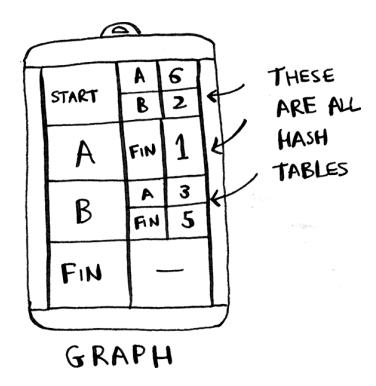 START
A 6
B 2
A
FIN 1
B
A 3
FIN 5
FIN
—
THESE
ARE ALL
HASH
TABLES
GRAPH